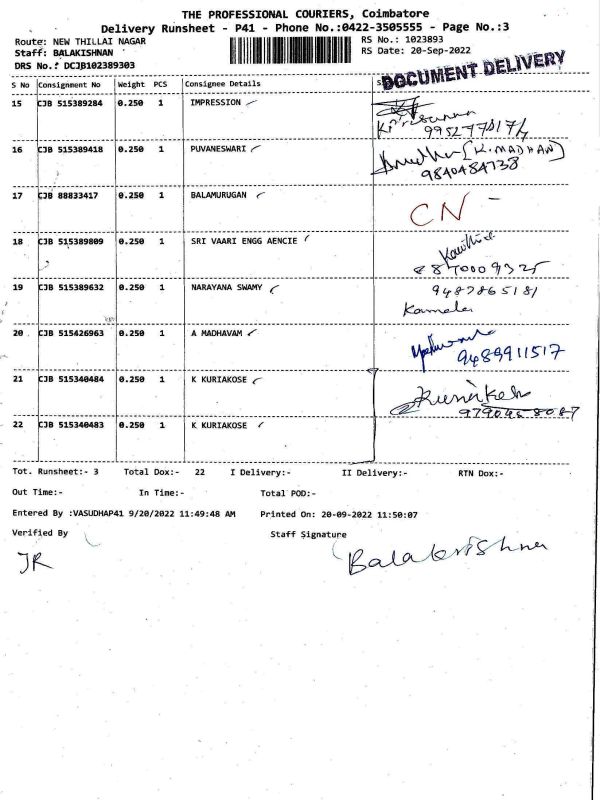 THE PROFESSIONAL COURIERS, Coimbatore
Delivery Runsheet - P41 - Phone No.:0422-3505555 - Page No.:3
Route: NEW THILLAI NAGAR
RS No.: 1023893
Staff: BALAKISHNAN
RS Date: 20-Sep-2022
DRS No.: DCJB102389303
DOCUMENT DELIVERY
S No Consignment No Weight PCS Consignee Details
15 CJB 515389284 0.250 1 IMPRESSION
16 CJB 515389418 0.250 1 PUVANESWARI
(K.MADHAN)
9840484738
17 CJB 88833417 0.250 1 BALAMURUGAN
CN
18 CJB 515389809 0.250 1 SRI VAARI ENGG AENCIE
19 CJB 515389632 0.250 1 NARAYANA SWAMY
9487865181
Kamala
20 CJB 515426963 0.250 1 A MADHAVAM
9489911517
21 CJB 515340484 0.250 1 K KURIAKOSE
22 CJB 515340483 0.250 1 K KURIAKOSE
Tot. Runsheet:- 3 Total Dox:- 22 I Delivery:- II Delivery:- RTN Dox:-
Out Time:- In Time:- Total POD:-
Entered By :VASUDHAP41 9/20/2022 11:49:48 AM Printed On: 20-09-2022 11:50:07
Verified By Staff Signature
JR
Balakrishna